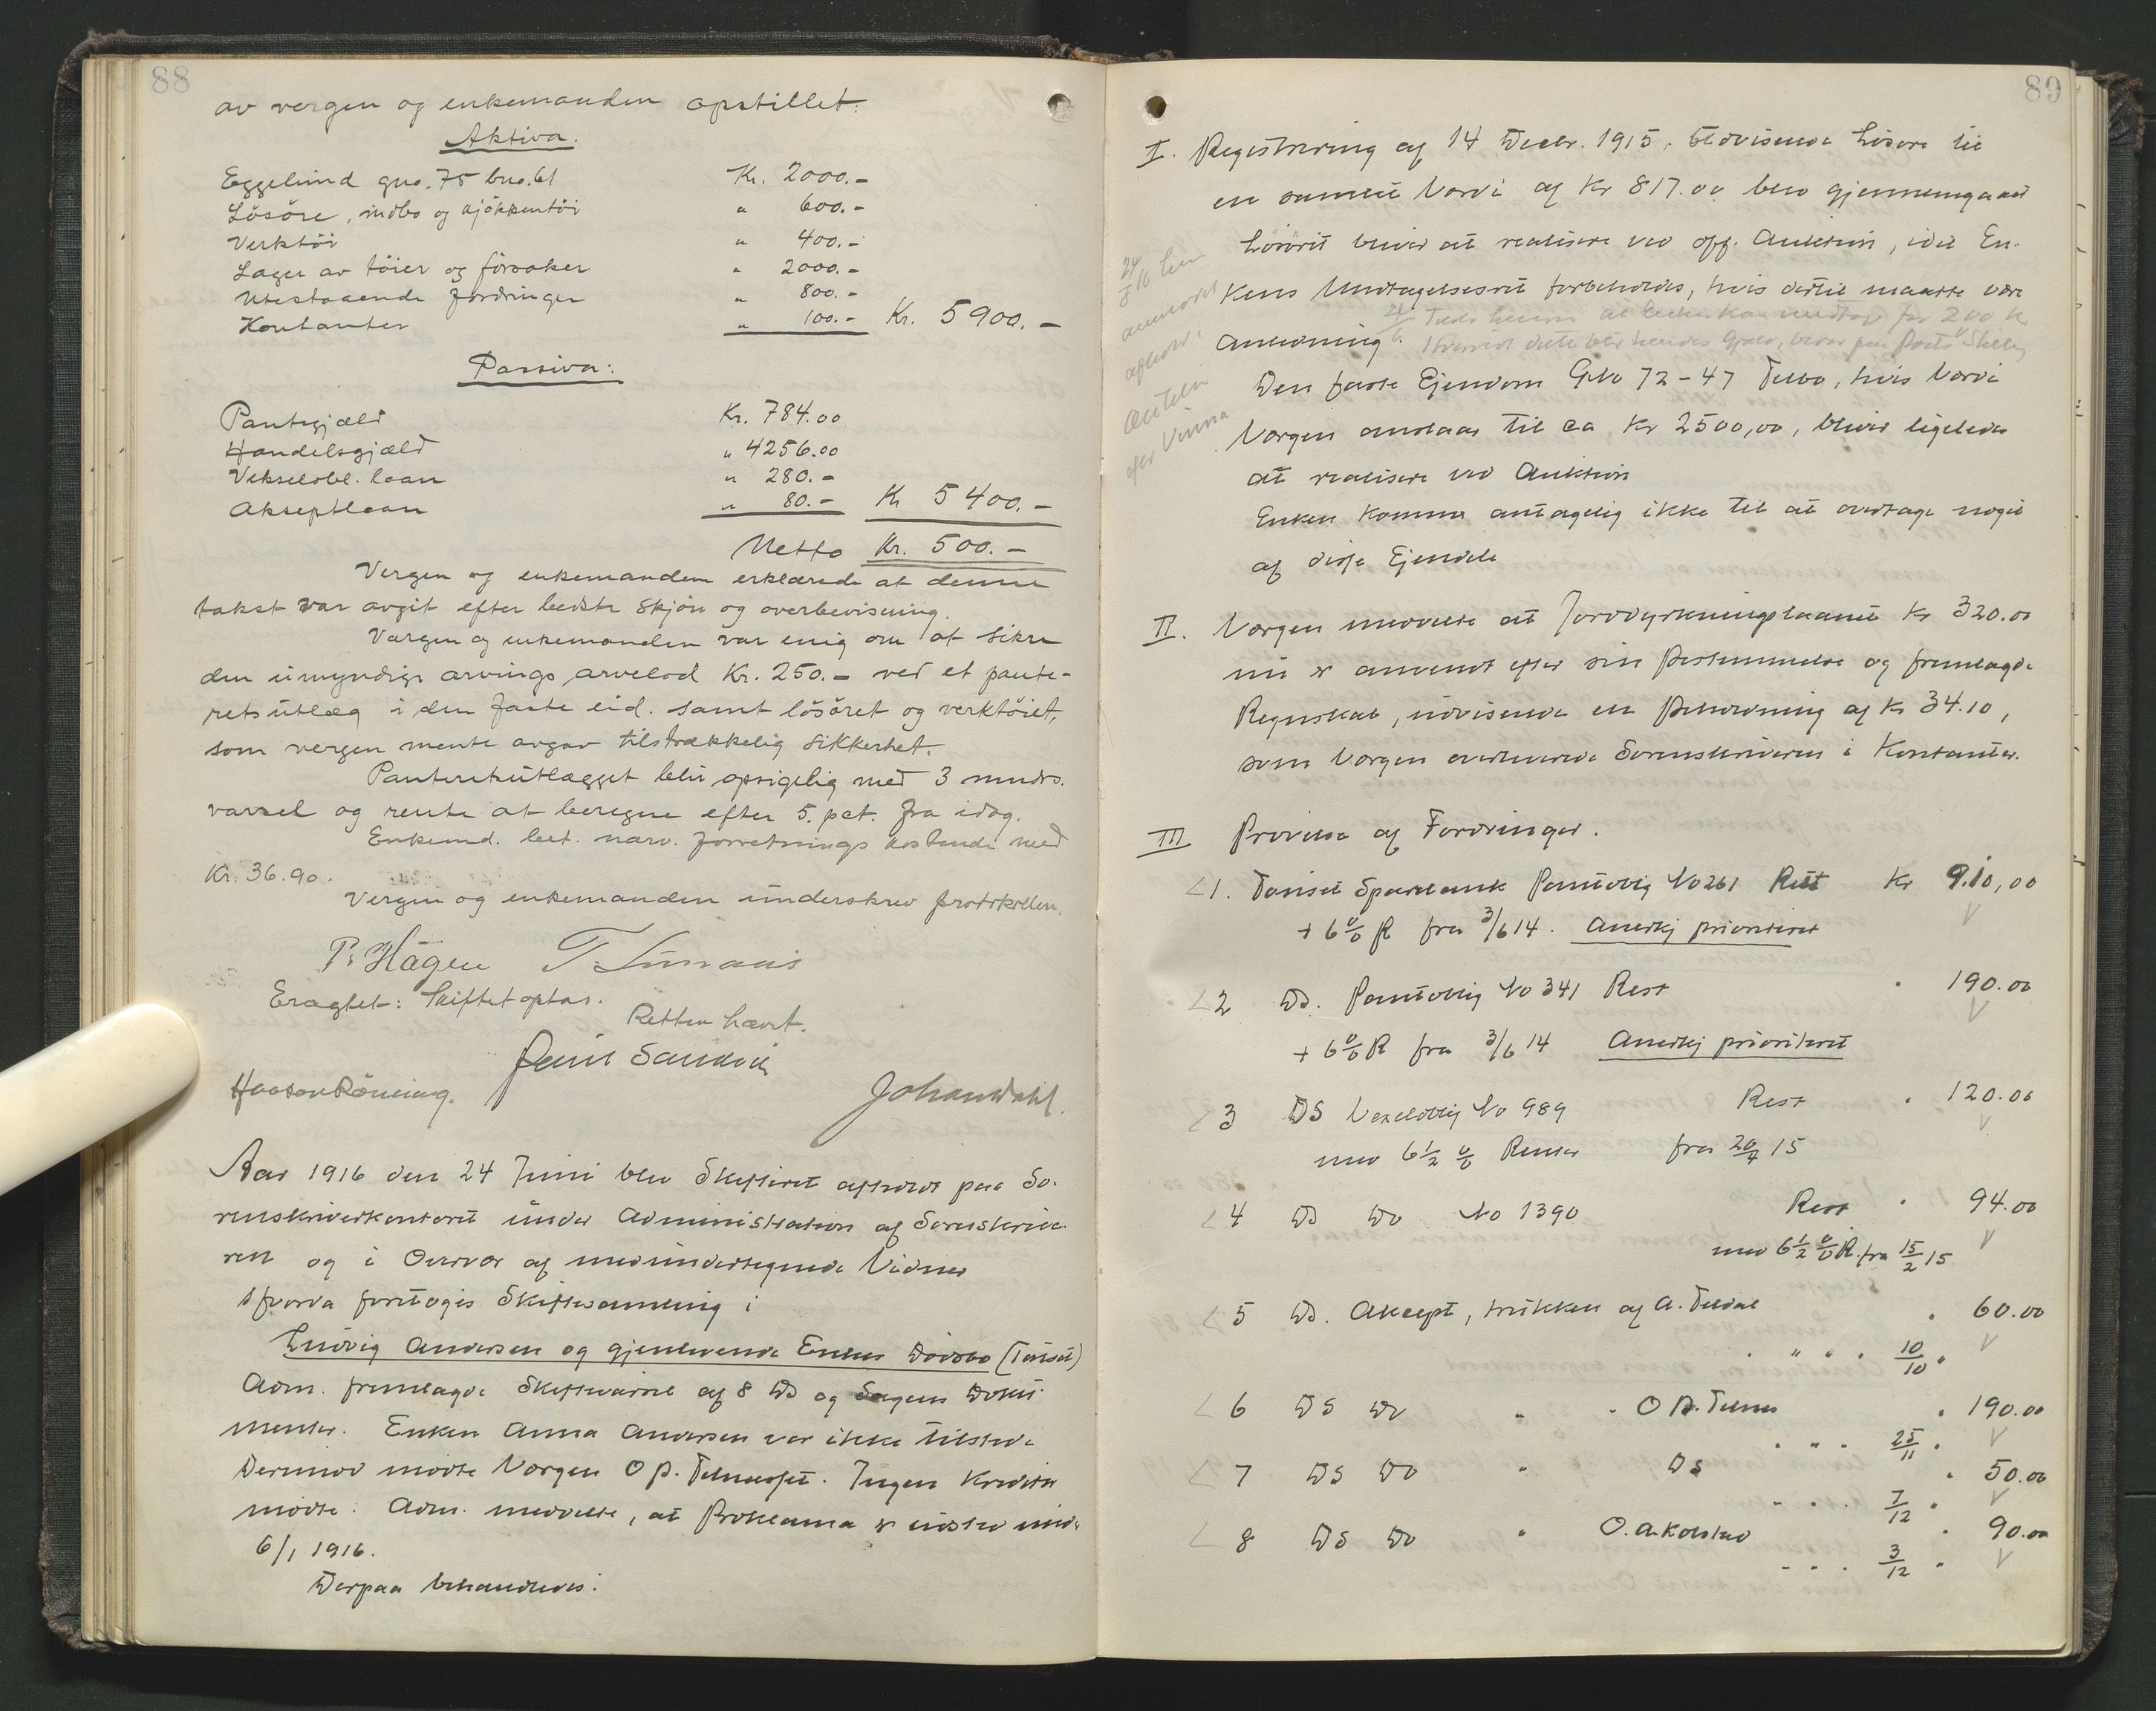 88
av vergen og enkemanden opstillet:
Aktiva.
Eggelund gno. 75 bno. 61 Kr. 2000.-
Lösöre, indbo og kjökkentöi " 600.-
Verktöi " 400.-
Lager av töier og försaker " 2000.-
Utestaaende fordringer " 800.-
Kontanter " 100.- Kr. 5900.-
Passiva:
Pantegjæld Kr. 784.00
Handelsgjæld " 4256.00
Vekselobl. loan " 280.-
Akseptloan " 80.- Kr 5400.-
Netto Kr. 500.-
Vergen og enkemanden erklærede at denne
takst var avgit efter bedste skjön og overbevisning.
Vergen og enkemanden var enig om at sikre
den umyndige arvings arvelod Kr. 250.- ved et pante-
retsutlæg i den faste eid. samt lösöret og verktöiet,
som vergen mente avgav tilstrækkelig sikkerhet.
Panteretsutlægget blir opsigelig med 3 mndrs.
varsel og rente at beregne efter 5. pct. fra idag.
Enkemd. bet. narv. forretnings kostende med
Kr. 36.90.
Vergen og enkemanden underskrev protokollen.
P. Hagen T.
Eragtet: Skiftet optas.
Retten hævet.
Johan Dahl.
Aar 1916 den 24 Juni blev Skifteret afholdt paa So-
renskriverkontoret under Administration af Sorenskrive-
ren og i Overvær af medundertegnede Vidner
Hvorda foretoges Skiftesamling i
Ludvig Andersen og gjenlevende Enkes Dödsbo (Tönset)
Adm. fremlagde Skiftevarsel af 8 Ds og Sagens Doku-
menter. Enken Anna Andersen var ikke tilstede
Derimod mödte Værgen O P. Telneset. Ingen Kreditor
mödte. Adm. meddelte, at Proklama er udsted und.
6/1 1916.
Derpaa behandledes:
89
I. Registrering af 14 Decbr. 1915, udvisende Lösöre til
en samlet Værdi af Kr 817.00 blev gjennemgaaet
Lösöret bliver at realisere ved off. Auktion, idet En-
kens Undtagelsesret forbeholdes, hvis dertil maatte være
Anledning.
Den faste Ejendom GNo 72-47 Telbo, hvis Værdi
Værgen anslaar til ca Kr 2500,00, bliver ligeledes
at realisere ved Auktion
Enken kommer antagelig ikke til at overtage noget
af disse Ejendele
II. Værgen meddelte at Jorddyrkningslaanet Kr 320.00
nu er anvendt efter sin Bestemmelse og fremlagde
Regnskab, udvisende en Beholdning af Kr 34.10,
som Værgen overleverede Sorenskriveren i Kontanter.
III Prövelse af Fordringer.
1. Tönset Sparebank Pantoblig No 261 Rest Kr 910,00
+ 6 % R fra 3/6 14. Anerkj prioriteret
2 Ds. Pantoblig No 341 Rest " 190.00
+ 6 % R fra 3/6 14 Anerkj prioriteret
3 DS Vexeloblig No 989 Rest " 120.00
med 6 1/2 % Renter fra 20/7 15
4 Ds Do No 1390 Rest " 94.00
med 6 1/2 % R. fra 15/2 15
5 Ds. Akcept, trukken af A. Teldal " 60.00
" " " " 10/10 "
6 DS Do " " O P. Telnes " 190.00
" " " 25/11 "
7 DS Do " DS " 50.00
" " " 7/12 "
8 DS Do " O. A. Kolstad " 90.00
" " " 3/12 "